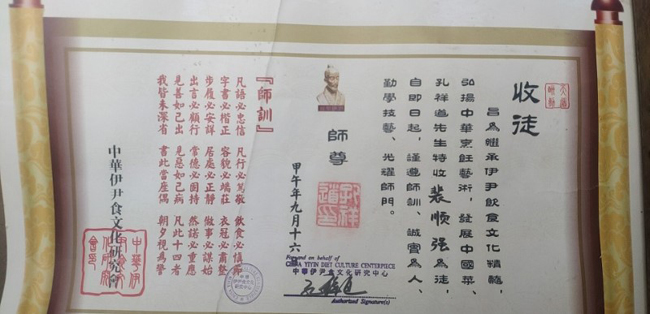 收徒
茲為繼承伊尹飲食文化精髓,
弘揚中華烹飪藝術,發展中國菜,
孔祥道先生特收裴顺强為徒,
自即日起,謹遵師訓、誠實為人、
勤學技藝、光耀師門。
師尊
孔祥道印
甲午年九月十六
For and on behalf of
CHINA YIYIN DIET CULTURE CENTERPIECE
中華伊尹食文化研究中心
Authorized Signature(s)
『師訓』
凡語必忠信 凡行必篤敬 飲食必慎節
字書必楷正 容貌必端莊 衣冠必肅整
步履必安詳 居處必正靜 做事必謀始
出言必顧行 常德必固持 然諾必重應
見善如己出 見惡如己病 凡此十四者
我皆未深省 書此當座隅 朝夕視為警
中華伊尹食文化研究會